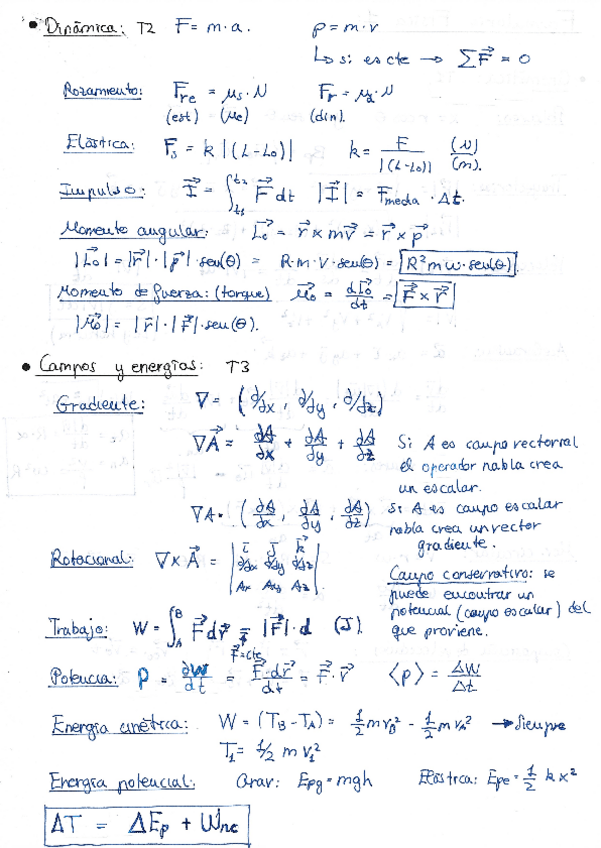 • Dinámica: T2 F = m·a. p = m·v
↳ si es cte → ΣF⃗ = 0
Rozamiento: F⃗re = μs·N F⃗r = μd·N
(est) = (μe) (din).
Elástica: Fs = k |(L-Lo)| k = F / |(L-Lo)| (N)/(m).
Impulso: I⃗ = ∫ F⃗ dt |I⃗| = Fmedia · Δt.
Momento angular: L⃗o = r⃗ × mv⃗ = r⃗ × p⃗
|L⃗o| = |r⃗|·|p⃗|·sen(θ) = R·m·V·sen(θ) = R²mω·sen(θ)
Momento de fuerza: (torque) M⃗o = dL⃗o/dt = F⃗ × r⃗
|M⃗o| = |r⃗|·|F⃗|·sen(θ).
• Campos y energías: T3
Gradiente: ∇ = (∂/∂x, ∂/∂y, ∂/∂z)
∇A⃗ = ∂A/∂x + ∂A/∂y + ∂A/∂z Si A es campo vectorial
el operador nabla crea
un escalar.
∇A· (∂A/∂x, ∂A/∂y, ∂A/∂z) Si A es campo escalar
nabla crea un vector
gradiente.
Rotacional: ∇×A⃗ = | i⃗ j⃗ k⃗
∂/∂x ∂/∂y ∂/∂z
Ax Ay Az |
Campo conservativo: se
puede encontrar un
potencial (campo escalar) del
que proviene.
Trabajo: W = ∫_A^B F⃗ dr⃗ = |F⃗|·d (J).
F⃗=cte
Potencia: P = ∂W/dt = F⃗·dr⃗/dt = F⃗·v⃗ ⟨p⟩ = ΔW/Δt
Energía cinética: W = (TB - TA) = 1/2 m vB² - 1/2 m vA² → Siempre
T1 = 1/2 m v1²
Energía potencial: Grav: Epg = mgh Elástica: Epe = 1/2 k x²
ΔT = ΔEp + Wnc